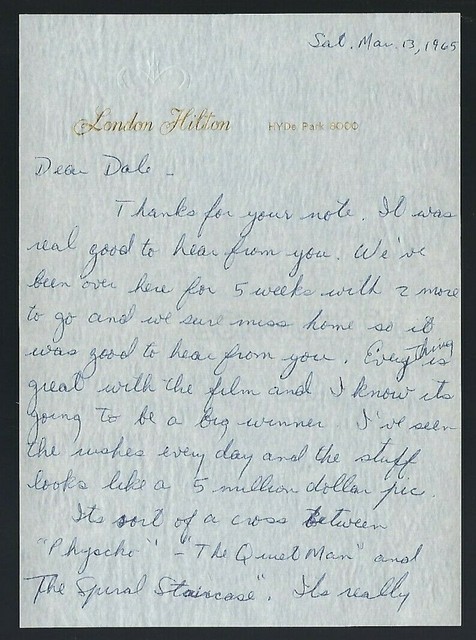 Sat. Mar. 13, 1965
London Hilton HYDe Park 8000
Dear Dale -
Thanks for your note. It was
real good to hear from you. We've
been over here for 5 weeks with 2 more
to go and we sure miss home so it
was good to hear from you. Everything is
great with the film and I know its
going to be a big winner. I've seen
the rushes every day and the stuff
looks like a 5 million dollar pic.
Its sort of a cross between
"Physcho" - "The Quiet Man" and
The Spiral Staircase". Its really